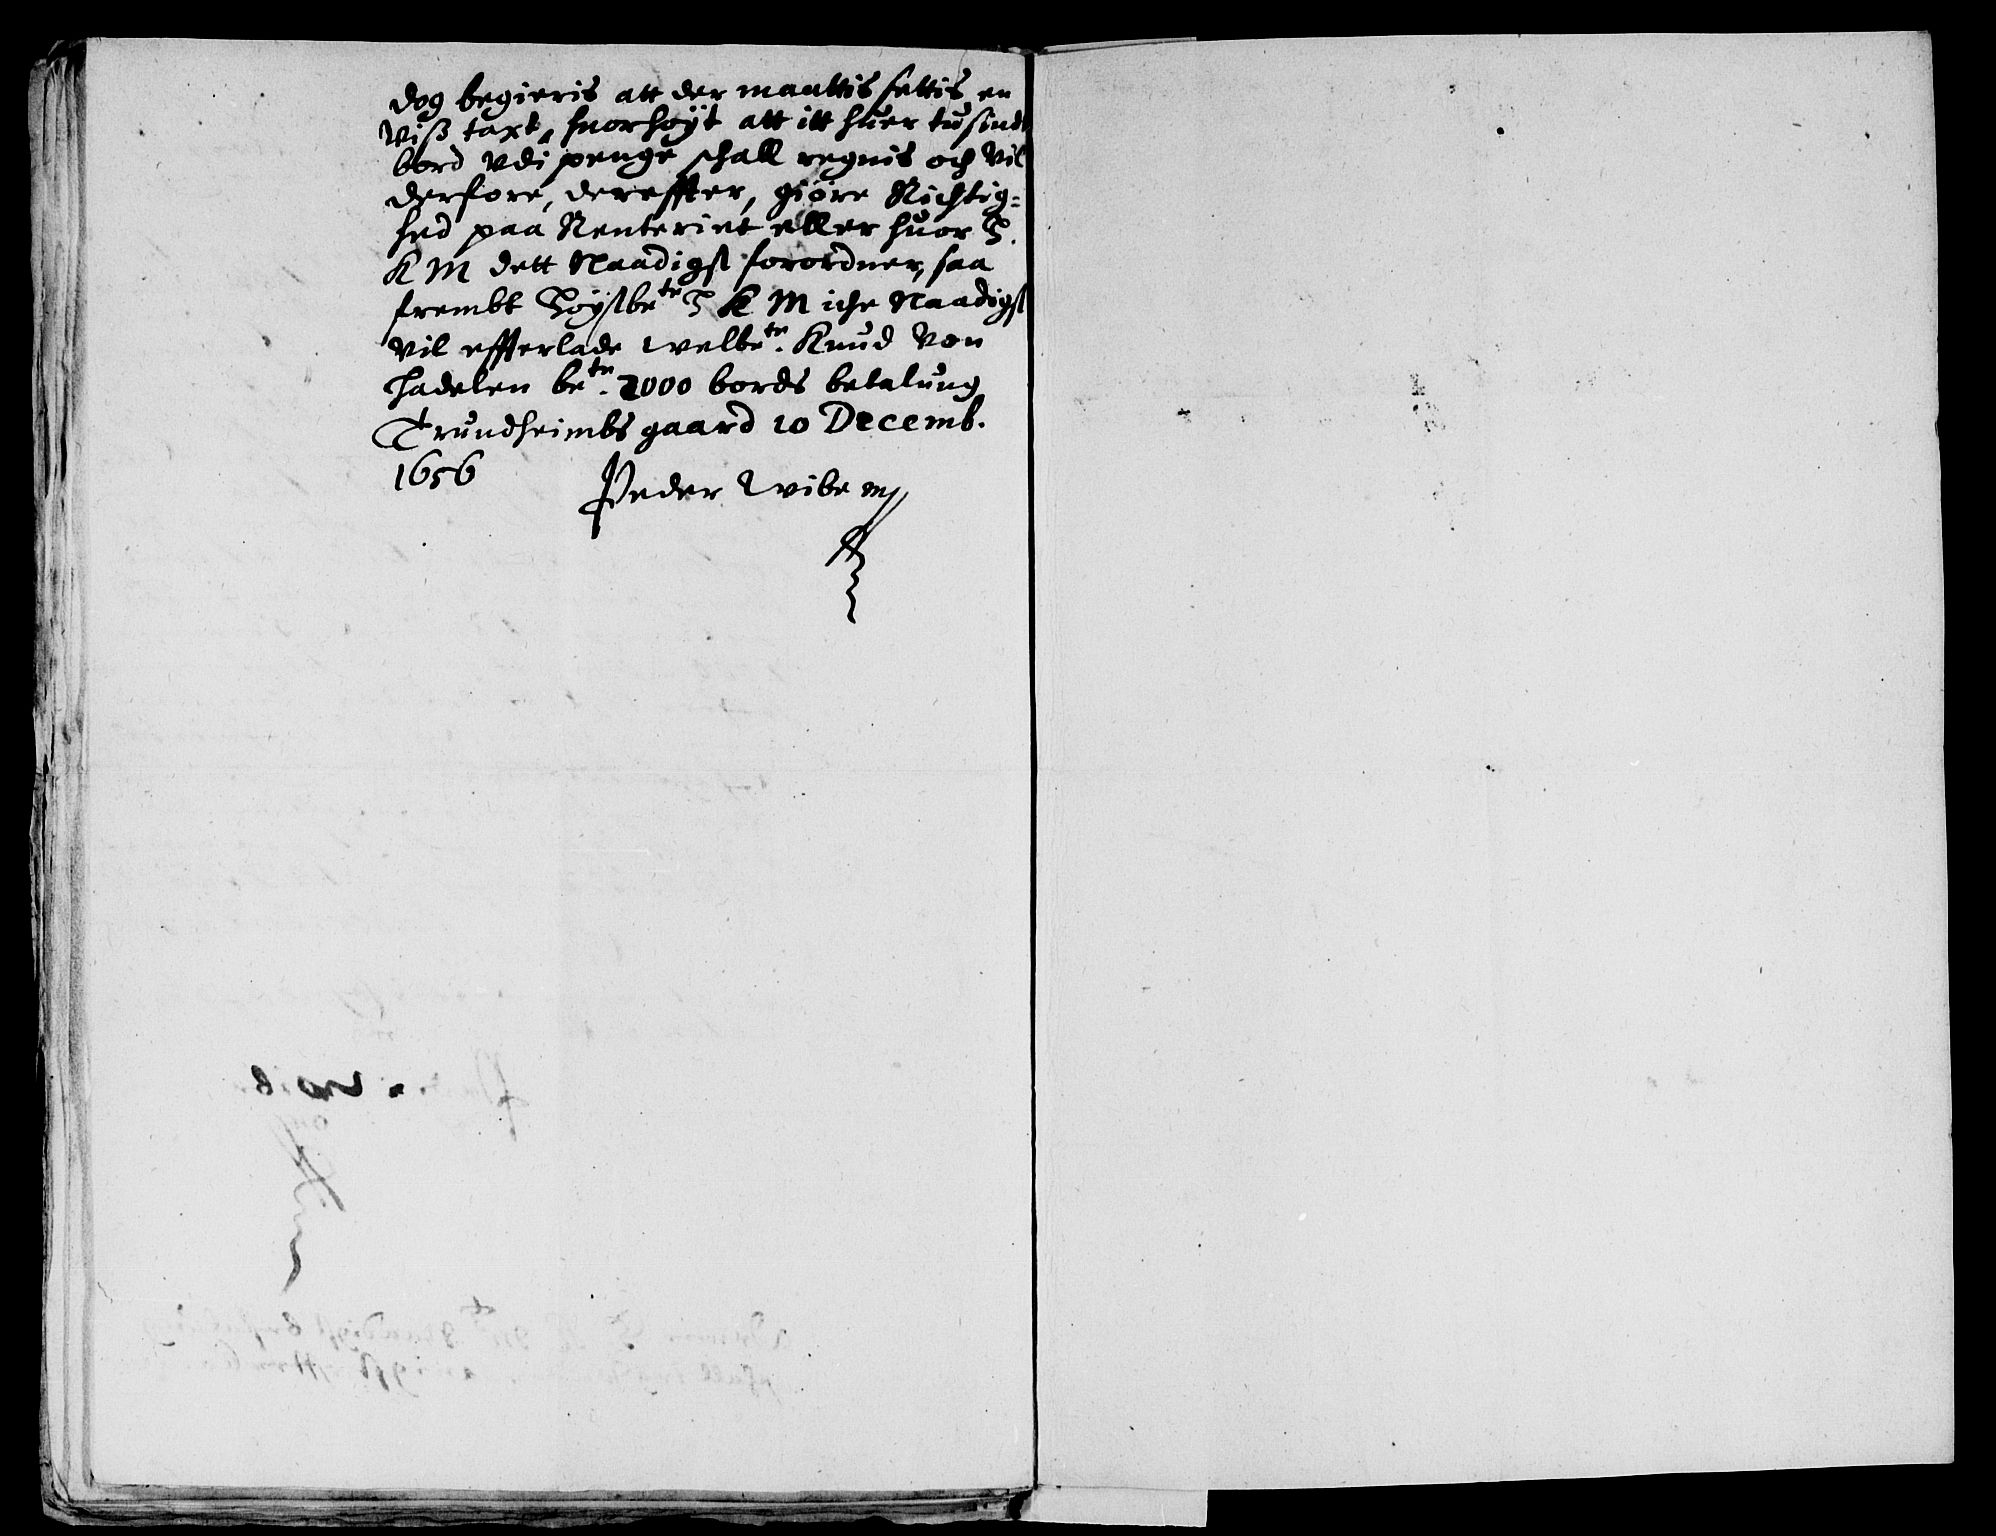 dog begieris att der maattis settis en
Viß taxt, huorhøyt att itt huer tusind
bord Vdi penge schall regnis och Vil
derfore, dereffter, giøre Richtig=
hed paa Renteriet eller huor E.
K M dett Naadigst forordner, saa
frembt Høystbete E K M iche Naadigst
Vil effterlade welbte. Knud Von
Hadelen betn. 2000 bords betalung
Trundheimbs gaard 10 Decemb.
1656 Peder Wibe mp